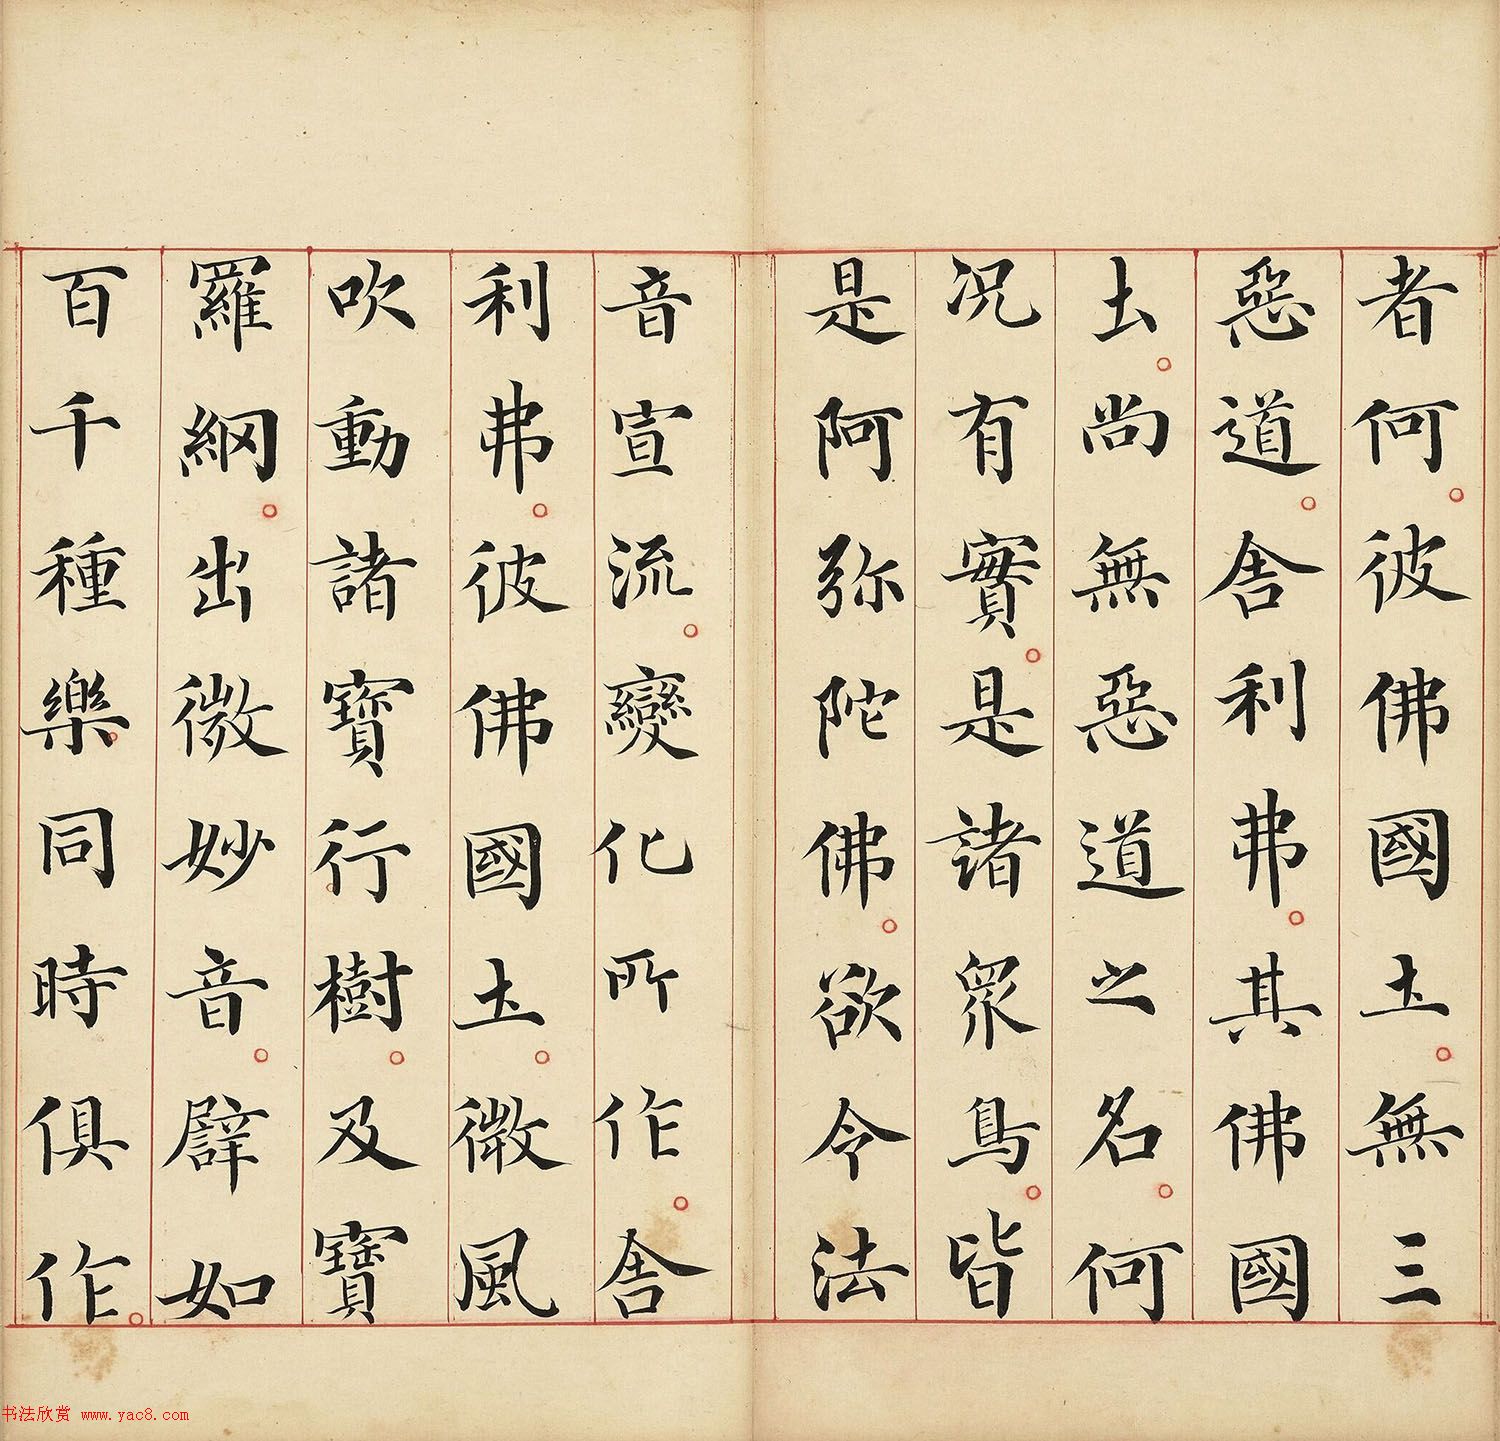 者何。彼佛國土。無三
惡道。舎利弗。其佛國
土。尚無惡道之名。何
况有實。是諸眾鳥。皆
是阿弥陀佛。欲令法
音宣流。變化所作。舎
利弗。彼佛國土。微風
吹動諸寶行樹。及寶
羅網。出微妙音。譬如
百千種樂。同時俱作。
书法欣赏 www.yac8.com